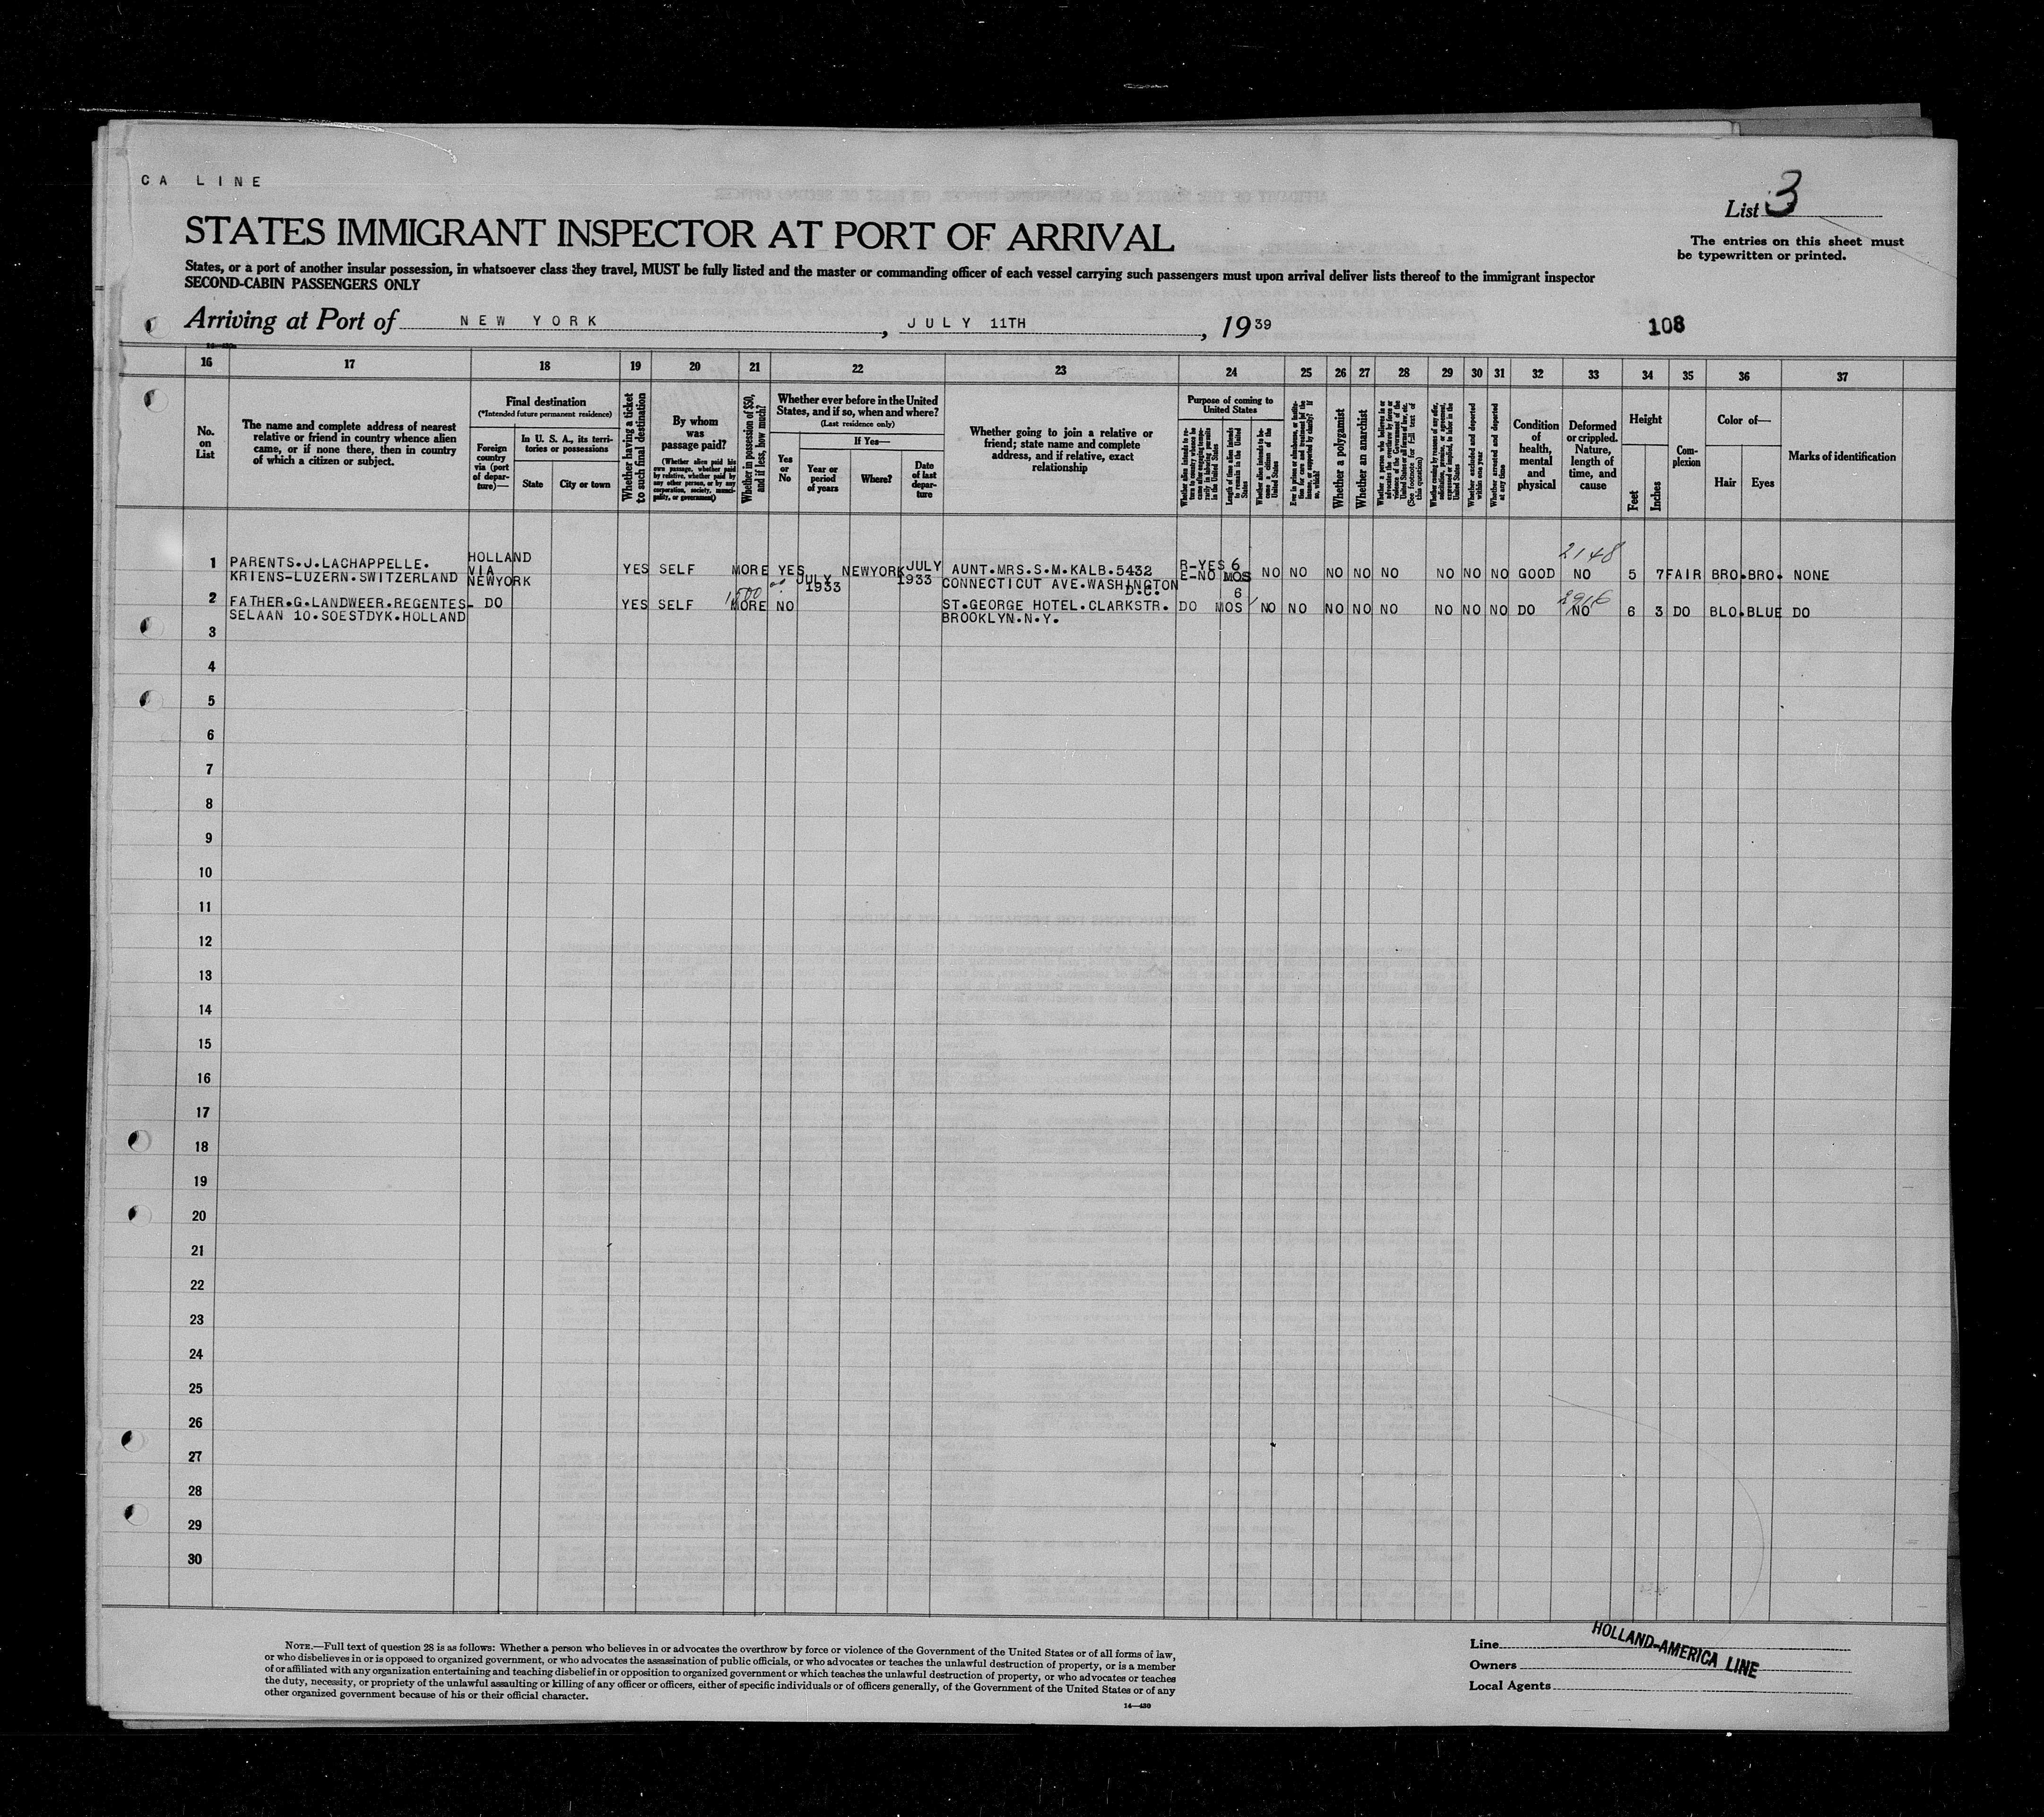 CA LINE
List 3
STATES IMMIGRANT INSPECTOR AT PORT OF ARRIVAL
The entries on this sheet must
be typewritten or printed.
States, or a port of another insular possession, in whatsoever class they travel, MUST be fully listed and the master or commanding officer of each vessel carrying such passengers must upon arrival deliver lists thereof to the immigrant inspector
SECOND-CABIN PASSENGERS ONLY
Arriving at Port of NEW YORK, JULY 11TH, 1939
108
16 17 18 19 20 21 22 23 24 25 26 27 28 29 30 31 32 33 34 35 36 37
No.
on
List
The name and complete address of nearest
relative or friend in country whence alien
came, or if none there, then in country
of which a citizen or subject.
Final destination
(*Intended future permanent residence)
Foreign
country
via (port
of depar-
ture)—
In U. S. A., its terri-
tories or possessions
State
City or town
Whether having a ticket
to such final destination
By whom
was
passage paid?
(Whether alien paid his
own passage, whether paid
by relative, whether paid by
any other person, or by any
corporation, society, munici-
pality, or government)
Whether in possession of $50,
and if less, how much?
Whether ever before in the United
States, and if so, when and where?
(Last residence only)
Yes
or
No
If Yes—
Year or
period
of years
Where?
Date
of last
depar-
ture
Whether going to join a relative or
friend; state name and complete
address, and if relative, exact
relationship
Purpose of coming to
United States
Length of time alien intends
to remain in the United
States
Whether alien intends to be-
come a citizen of the
United States
Whether a polygamist
Whether an anarchist
(See footnote for full text of
this question)
Whether excluded and deported
within one year
Whether arrested and deported
at any time
Condition
of
health,
mental
and
physical
Deformed
or crippled.
Nature,
length of
time, and
cause
Height
Feet
Inches
Com-
plexion
Color of—
Hair
Eyes
Marks of identification
2148
1 PARENTS.J.LACHAPPELLE.
KRIENS-LUZERN.SWITZERLAND
HOLLAND
VIA
NEWYORK
YES SELF MORE YES
JULY
1933
NEWYORK
JULY
1933
AUNT.MRS.S.M.KALB.5432
CONNECTICUT AVE.WASHINGTON
D.C.
R-YES
E-NO
6
MOS
NO NO NO NO NO NO NO NO GOOD NO 5 7 FAIR BRO. BRO. NONE
2916
2 FATHER.G.LANDWEER.REGENTES-
SELAAN 10.SOESTDYK.HOLLAND
DO YES SELF
1500
MORE NO
ST.GEORGE HOTEL.CLARKSTR.
BROOKLYN.N.Y.
DO
6
MOS
NO NO NO NO NO NO NO NO DO NO 6 3 DO BLO. BLUE DO
3
4
5
6
7
8
9
10
11
12
13
14
15
16
17
18
19
20
21
22
23
24
25
26
27
28
29
30
NOTE.—Full text of question 28 is as follows: Whether a person who believes in or advocates the overthrow by force or violence of the Government of the United States or of all forms of law,
or who disbelieves in or is opposed to organized government, or who advocates the assassination of public officials, or who advocates or teaches the unlawful destruction of property, or is a member
of or affiliated with any organization entertaining and teaching disbelief in or opposition to organized government or which teaches the unlawful destruction of property, or who advocates or teaches
the duty, necessity, or propriety of the unlawful assaulting or killing of any officer or officers, either of specific individuals or of officers generally, of the Government of the United States or of any
other organized government because of his or their official character.
14—430
Line
Owners
Local Agents
HOLLAND-AMERICA LINE